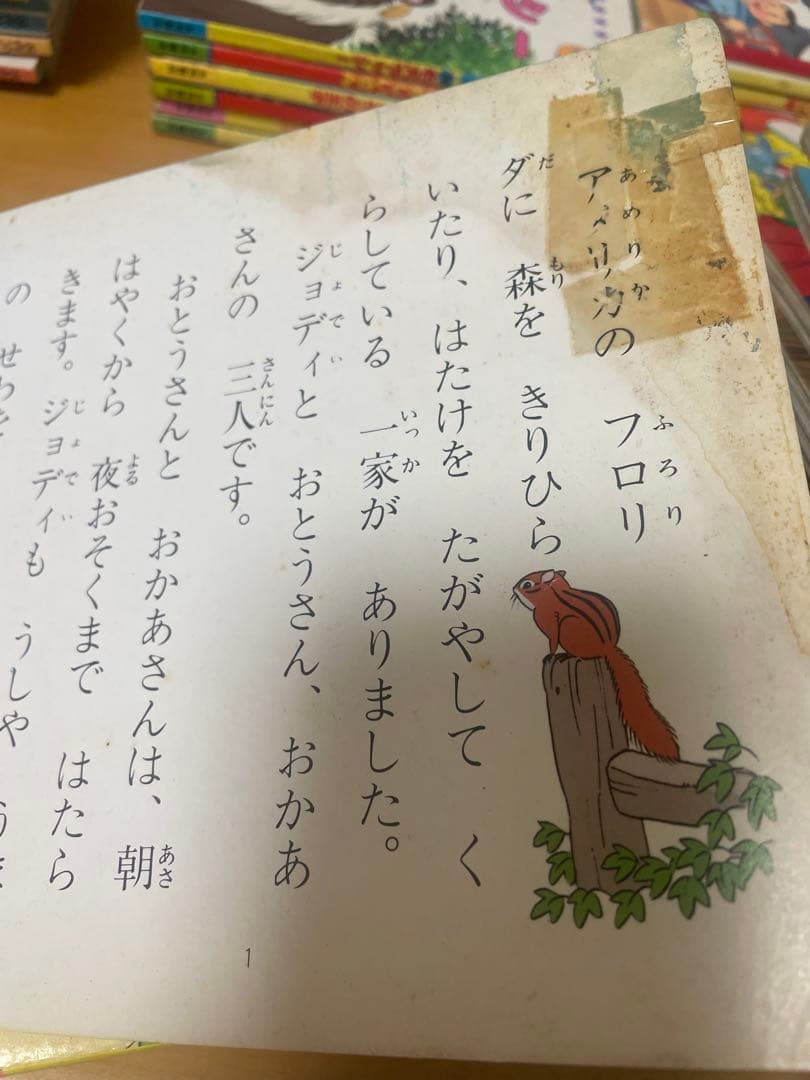 アメリカの　フロリ
ダに　森を　きりひら
いたり、はたけを　たがやして　く
らしている　一家が　ありました。
ジョディと　おとうさん、おかあ
さんの　三人です。
おとうさんと　おかあさんは、朝
はやくから　夜おそくまで　はたら
きます。ジョディも　うしや
の
1